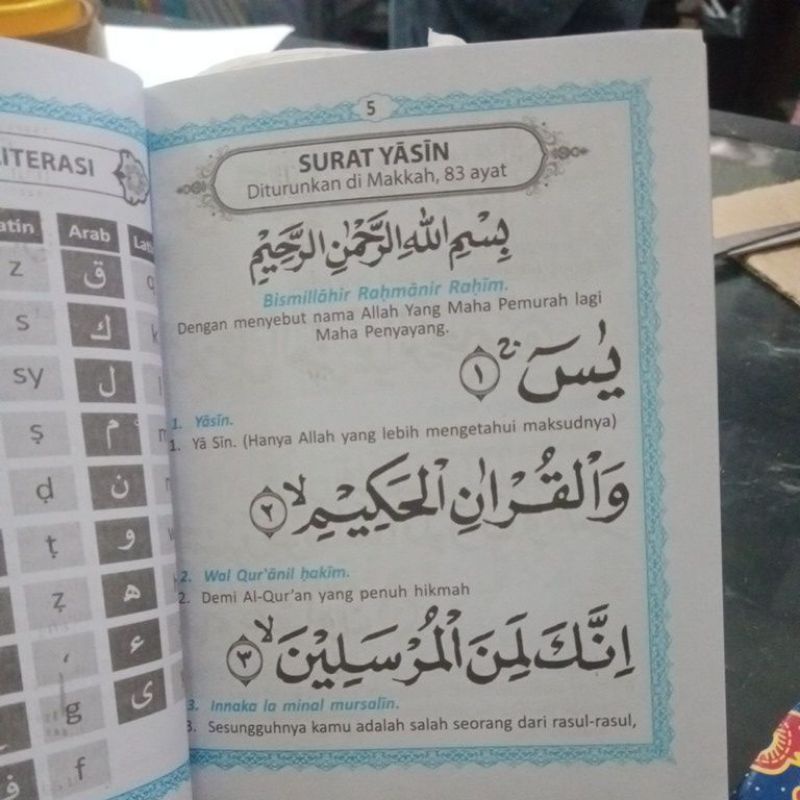 LITERASI
atin Arab Lat
z ق q
s ك k
sy ل l
ṣ م m
ḍ ن
ṭ و
ẓ ه
‘ ء
g ى
f
ف
5
SURAT YĀSĪN
Diturunkan di Makkah, 83 ayat
بِسْمِ اللّٰهِ الرَّحْمٰنِ الرَّحِيْمِ
Bismillāhir Raḥmānir Raḥīm.
Dengan menyebut nama Allah Yang Maha Pemurah lagi
Maha Penyayang.
يٰسۤ ۚ ١
1. Yāsīn.
1. Yā Sīn. (Hanya Allah yang lebih mengetahui maksudnya)
وَالْقُرْاٰنِ الْحَكِيْمِ ۙ ٢
2. Wal Qur'ānil ḥakīm.
2. Demi Al-Qur'an yang penuh hikmah
اِنَّكَ لَمِنَ الْمُرْسَلِيْنَ ۙ ٣
3. Innaka la minal mursalīn.
3. Sesungguhnya kamu adalah salah seorang dari rasul-rasul,